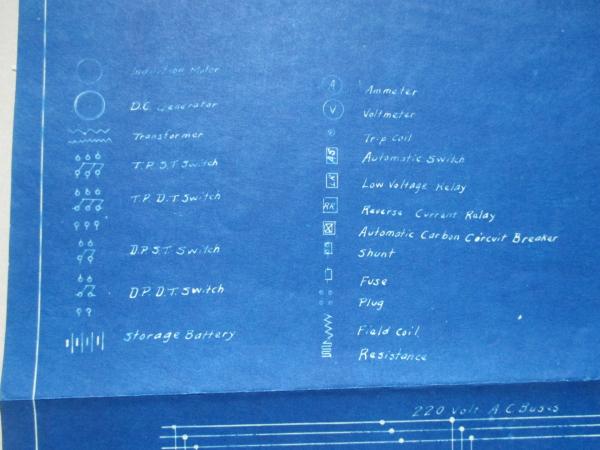 Induction Motor
D.C. Generator
Transformer
T.P.S.T. Switch
T.P.D.T. Switch
D.P.S.T. Switch
D.P.D.T. Switch
Storage Battery
A Ammeter
V Voltmeter
Trip Coil
AS Automatic Switch
Low Voltage Relay
RR Reverse Current Relay
Automatic Carbon Circuit Breaker
Shunt
Fuse
Plug
Field Coil
Resistance
220 Volt A.C. Buses